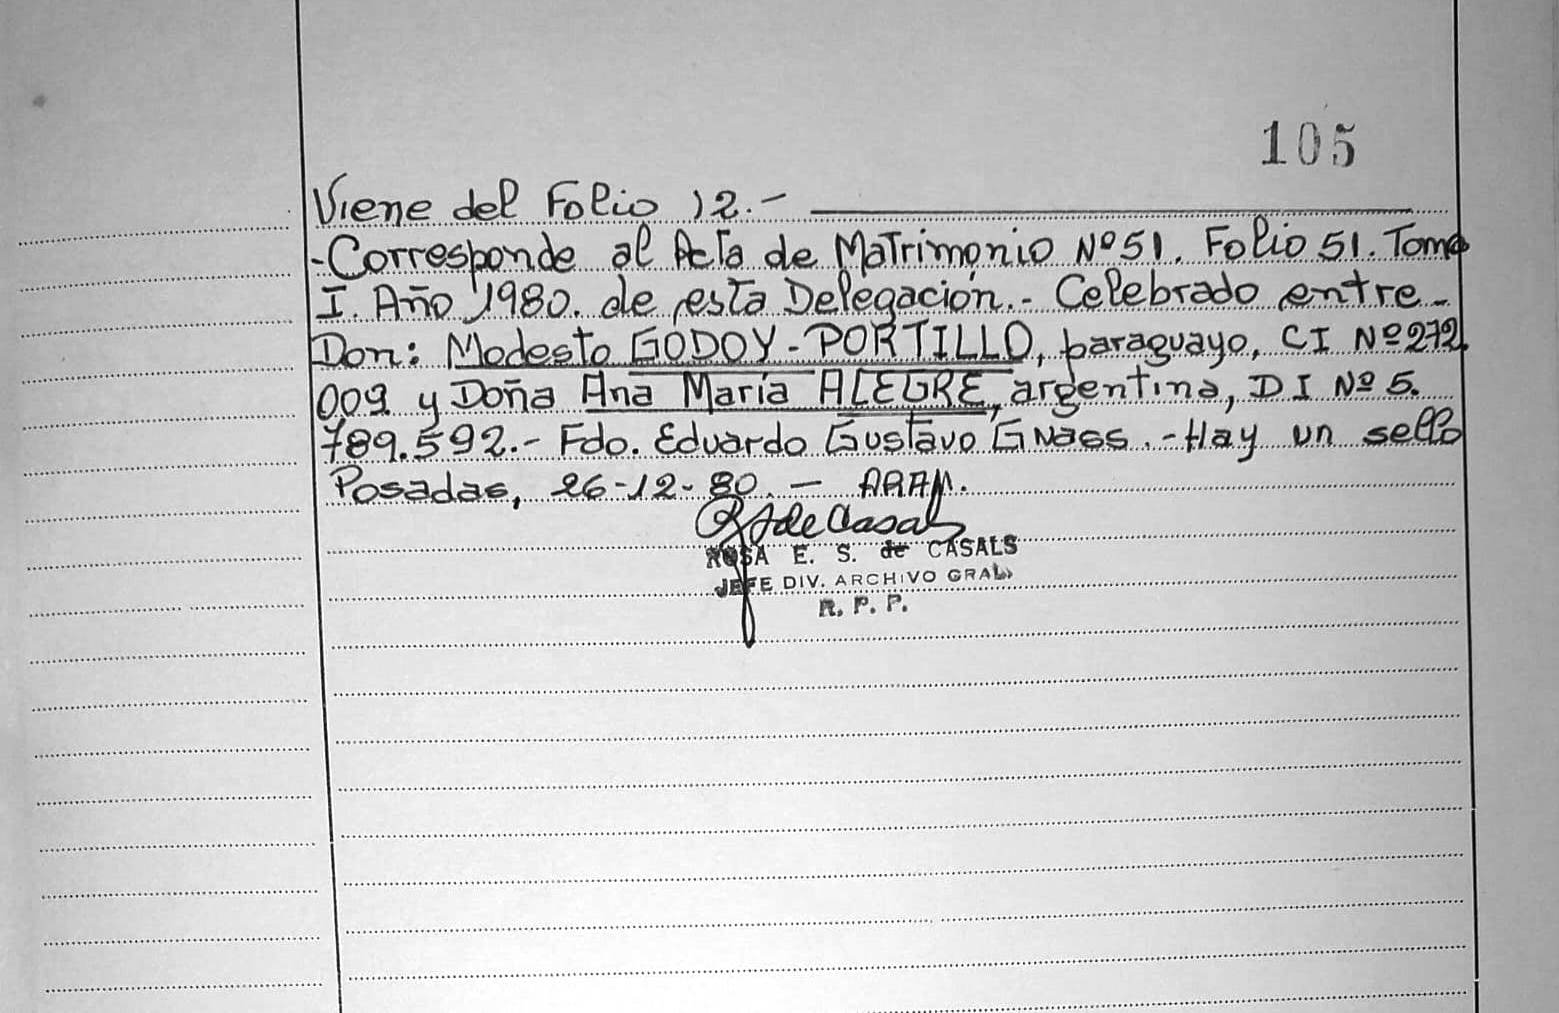 105
Viene del Folio 12.-
-Corresponde al Acta de Matrimonio Nº 51. Folio 51. Tomo
I. Año 1980. de esta Delegación.- Celebrado entre-
Don: Modesto GODOY-PORTILLO, paraguayo, CI Nº 272.
009 y Doña Ana María ALEGRE, argentina, DI Nº 5.
789.592.- Fdo. Eduardo Gustavo GNass.- Hay un sello
Posadas, 26-12-80.- ARAM.
de Casals
ROSA E. S. de CASALS
JEFE DIV. ARCHIVO GRAL.
R. P. P.